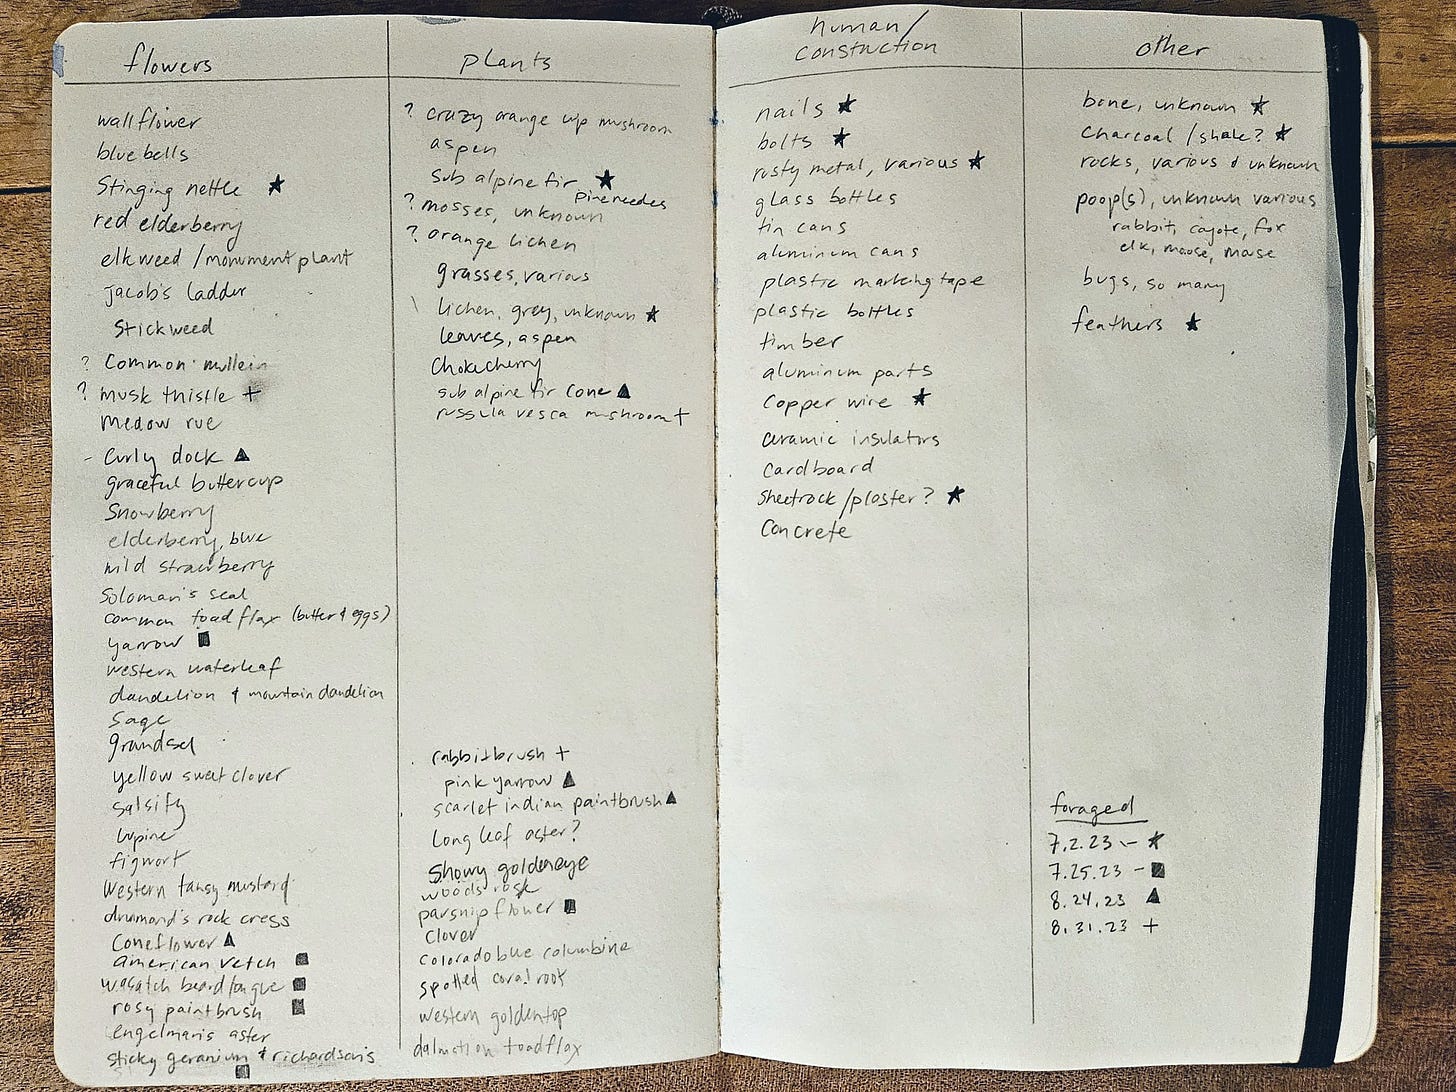 flowers
wallflower
bluebells
Stinging nettle ★
red elderberry
elkweed / monument plant
Jacob's ladder
Stickweed
? Common mullein
? musk thistle +
medow rue
- Curly dock ▲
graceful buttercup
Snowberry
elderberry, blue
wild strawberry
Soloman's seal
common toad flax (butter & eggs)
yarrow ■
western waterleaf
dandelion & mountain dandelion
Sage
grandsel
yellow sweet clover
salsify
lupine
figwort
Western tansy mustard
drumond's rock cress
Coneflower ▲
american vetch ■
wasatch beardtongue ■
rosy paintbrush ■
engelman's aster
sticky geranium & richardson's
■
plants
? crazy orange cup mushroom
aspen
Sub alpine fir ★
pine needles
? mosses, unknown
? orange lichen
grasses, various
lichen, grey, unknown ★
leaves, aspen
Chokecherry
sub alpine fir cone ▲
russula vesca mushroom +
rabbitbrush +
pink yarrow ▲
scarlet indian paintbrush ▲
long leaf aster?
Showy goldeneye
woods rose
parsnip flower ■
clover
colorado blue columbine
spotted coral root
western goldentop
dalmation toadflax
human/
construction
nails ★
bolts ★
rusty metal, various ★
glass bottles
tin cans
aluminum cans
plastic marking tape
plastic bottles
timber
aluminum parts
Copper wire ★
ceramic insulators
Cardboard
Sheetrock/plaster? ★
Concrete
other
bone, unknown ★
Charcoal / shale? ★
rocks, various & unknown
poop(s), unknown various
rabbit, coyote, fox
elk, moose, mouse
bugs, so many
feathers ★
foraged
7.2.23 - ★
7.25.23 - ■
8.24.23 ▲
8.31.23 +